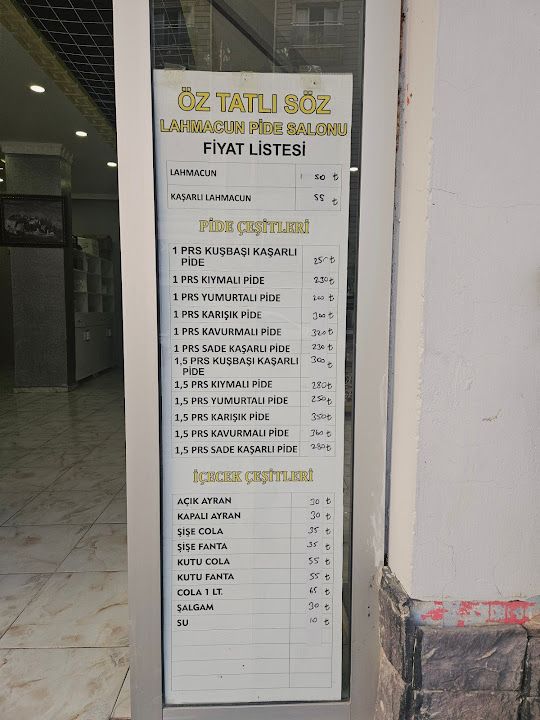 ÖZ TATLI SÖZ
LAHMACUN PİDE SALONU
FİYAT LİSTESİ
LAHMACUN 50 ₺
KAŞARLI LAHMACUN 55 ₺
PİDE ÇEŞİTLERİ
1 PRS KUŞBAŞI KAŞARLI
PİDE 250 ₺
1 PRS KIYMALI PİDE 230 ₺
1 PRS YUMURTALI PİDE 200 ₺
1 PRS KARIŞIK PİDE 300 ₺
1 PRS KAVURMALI PİDE 320 ₺
1 PRS SADE KAŞARLI PİDE 230 ₺
1,5 PRS KUŞBAŞI KAŞARLI 300 ₺
PİDE
1,5 PRS KIYMALI PİDE 280 ₺
1,5 PRS YUMURTALI PİDE 250 ₺
1,5 PRS KARIŞIK PİDE 350 ₺
1,5 PRS KAVURMALI PİDE 360 ₺
1,5 PRS SADE KAŞARLI PİDE 280 ₺
İÇECEK ÇEŞİTLERİ
AÇIK AYRAN 30 ₺
KAPALI AYRAN 30 ₺
ŞİŞE COLA 35 ₺
ŞİŞE FANTA 35 ₺
KUTU COLA 55 ₺
KUTU FANTA 55 ₺
COLA 1 LT. 65 ₺
ŞALGAM 30 ₺
SU 10 ₺